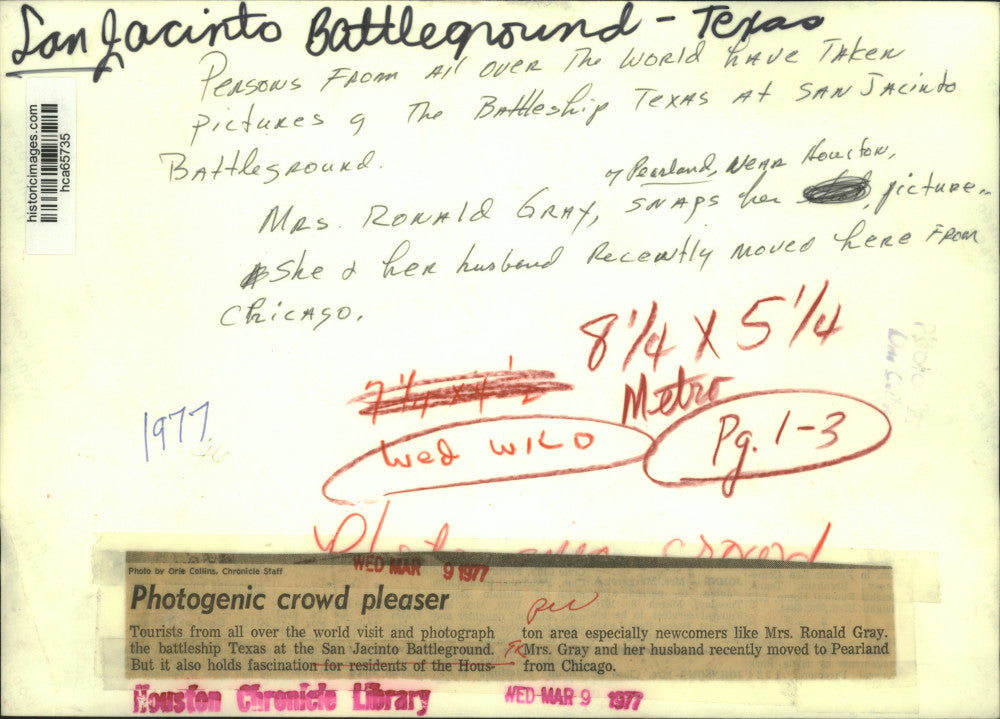 San Jacinto Battleground - Texas
Persons From All over The World have Taken
pictures of The Battleship Texas at San Jacinto
Battleground.
of Pearland, Near Houston,
Mrs. Ronald Gray, snaps her picture.
She & her husband Recently moved here From
Chicago.
historicimages.com
hca65735
8 1/4 X 5 1/4
7 1/4 x 4 1/2
Metro
1977
Wed WILD
Pg. 1-3
Photo by Orie Collins, Chronicle Staff
WED MAR 9 1977
Photogenic crowd pleaser
Tourists from all over the world visit and photograph
the battleship Texas at the San Jacinto Battleground.
But it also holds fascination for residents of the Hous-
ton area especially newcomers like Mrs. Ronald Gray.
Mrs. Gray and her husband recently moved to Pearland
from Chicago.
Houston Chronicle Library
WED MAR 9 1977